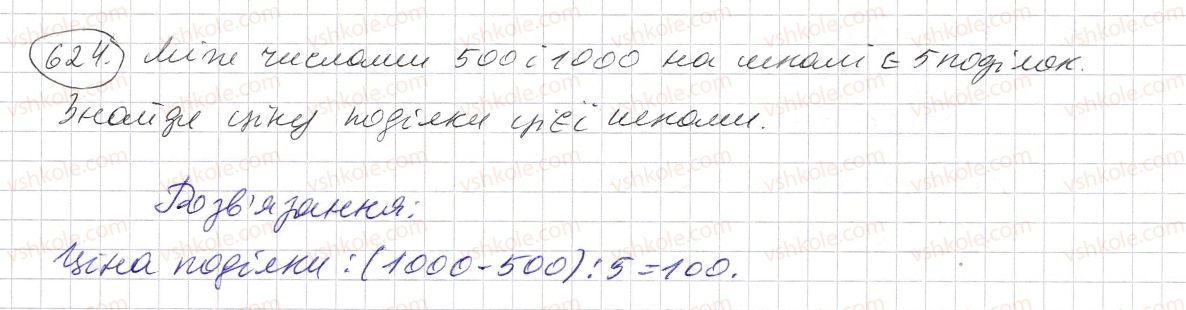 624. Між числами 500 і 1000 на шкалі є 5 поділок.
Знайди ціну поділки цієї шкали.
Розв'язання:
Ціна поділки: (1000-500):5=100.